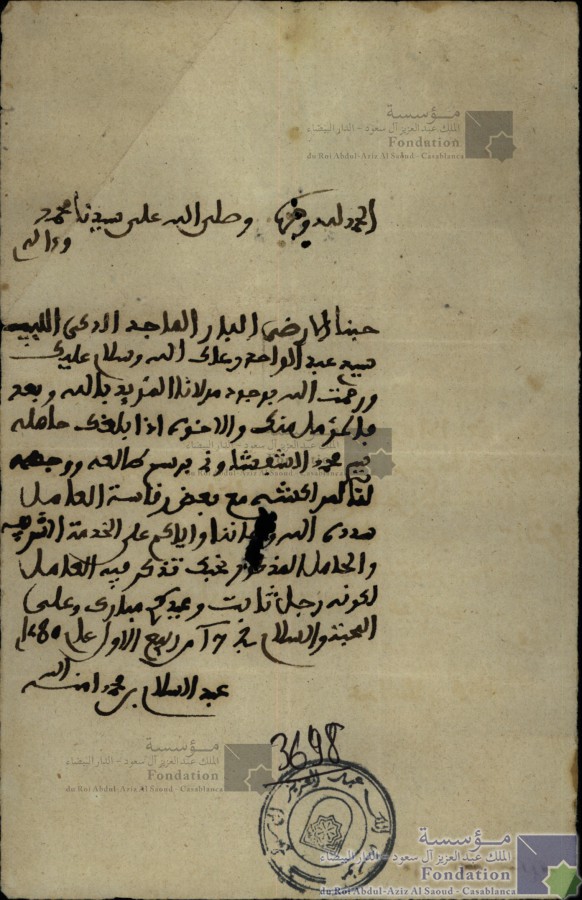 مؤسسة
الملك عبد العزيز آل سعود - الدار البيضاء
Fondation
du Roi Abdul-Aziz Al Saoud - Casablanca
الحمد لله وحده وصلى الله على سيدنا محمد
وءاله
حبنا المرضي البار الماجد الادعى اللبيب
سيد عبد الواحد وعلك الله وسلام عليك
ورحمت الله بوجود مولانا المؤيد بالله وبعد
فالمؤمل منك والاخوة اذا بلغك حامله
محمد الشفشاوني برسم ووجهه
لنا لمراكش مع بعض رقاسة العامل
سدده الله واياكم على الخدمة الشريفة
والحامل المذكور نحبك تذكر فيه العامل
لكونه رجل ثابت وعيدكم مبارك وعلى
المحبة والسلام في 17 من ربيع الاول عام 1280
عبد السلام بن محمد امنه الله
3698
مؤسسة
الملك عبد العزيز آل سعود - الدار البيضاء
Fondation
du Roi Abdul-Aziz Al Saoud - Casablanca
مؤسسة
الملك عبد العزيز آل سعود - الدار البيضاء
Fondation
du Roi Abdul-Aziz Al Saoud - Casablanca